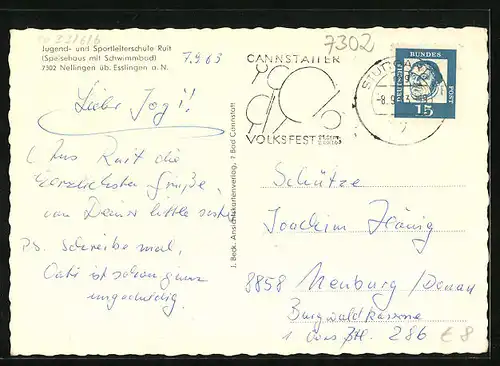 7302
Jugend- und Sportleiterschule Ruit
(Speisehaus mit Schwimmbad)
7302 Nellingen üb. Esslingen a. N.
7.9.63
Lieber Jogi!
Aus Ruit die
herzlichsten Grüße,
von Deiner little sister
Ps. Schreibe mal,
ist schon ganz
ungeduldig.
J. Beck, Ansichtskartenverlag, 7 Bad Cannstatt
CANNSTATTER
VOLKSFEST
DEUTSCHE BUNDESPOST
15
Schütze
Joachim
8858 Neuburg/Donau
286
€8